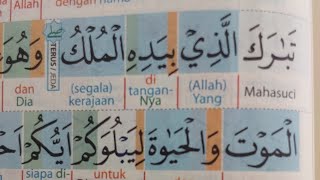 Allah dengan nama
تَبٰرَكَ الَّذِيْ بِيَدِهِ الْمُلْكُ وَهُوَ
TERUS/JEDA
dan Dia (segala) kerajaan di tangan-Nya (Allah) Yang Mahasuci
الْمَوْتَ وَالْحَيٰوةَ لِيَبْلُوَكُمْ اَيُّكُمْ
siapa di- untuk